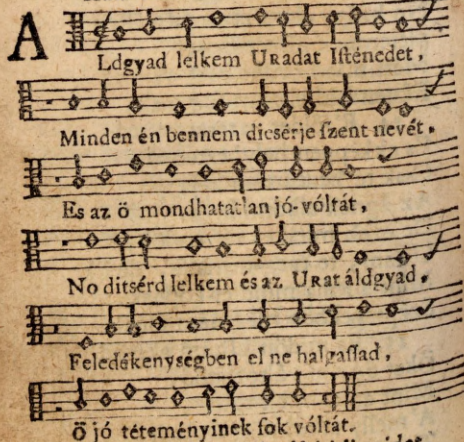 ALdgyad lelkem URadat Iſtenedet,
Minden én bennem dicsérje ſzent nevét.
Es az ö mondhatatlan jó-vóltát,
No ditsérd lelkem és az URat áldgyad,
Feledékenységben el ne halgaſſad,
Ö jó téteményinek ſok vóltát.